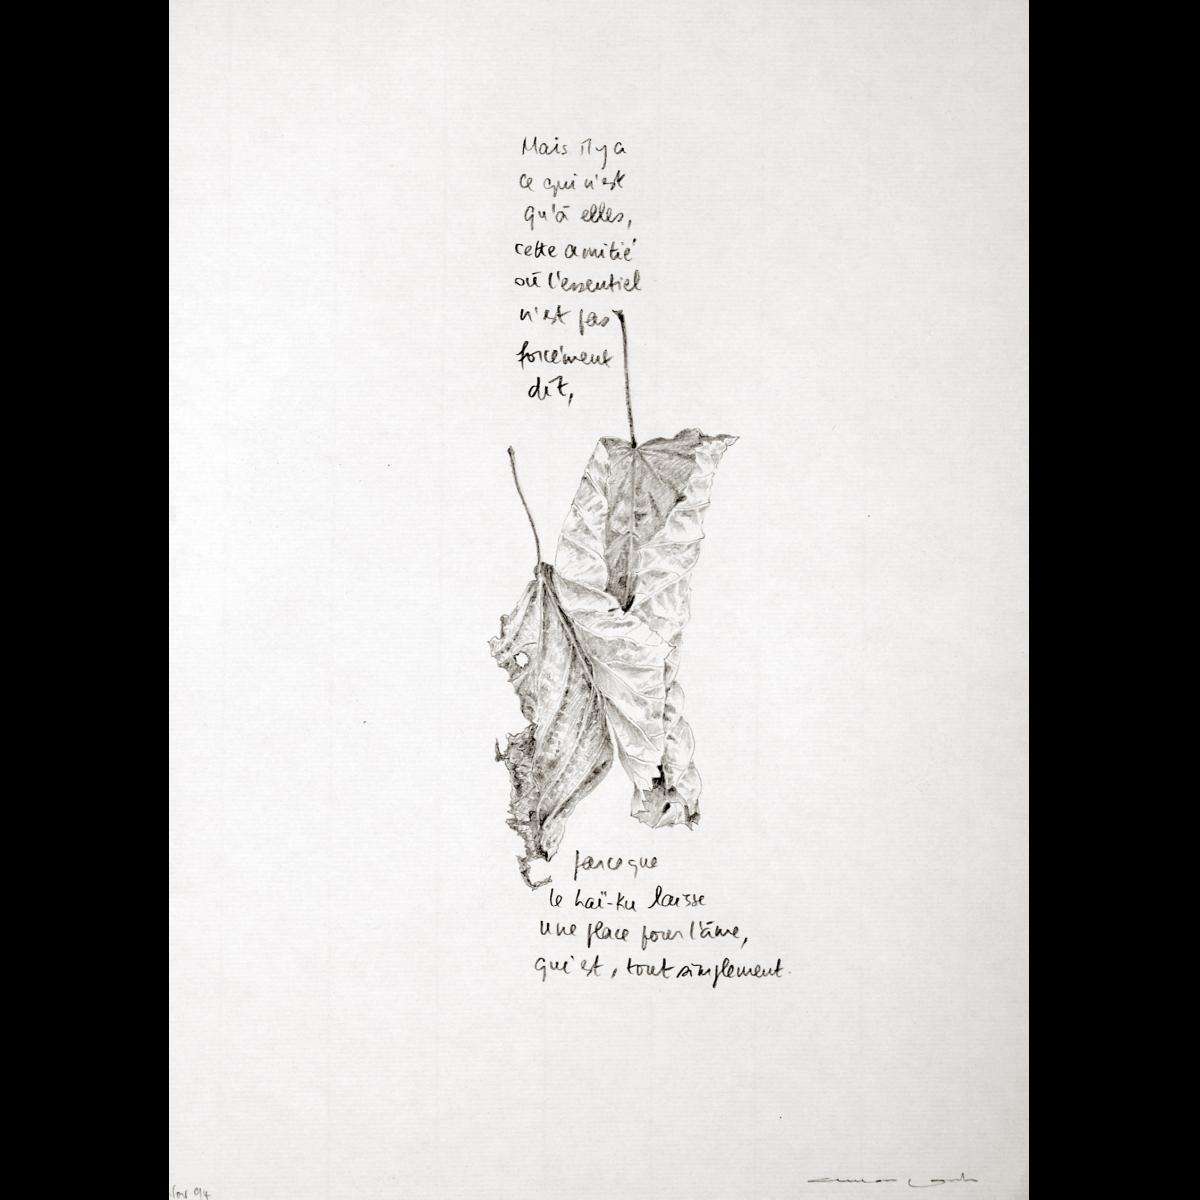 Mais il y a
ce qui n'est
qu'à elles,
cette amitié
où l'essentiel
n'est pas
forcément
dit,
parce que
le haï-ku laisse
une place pour l'âme,
qui est, tout simplement.
Nov 94